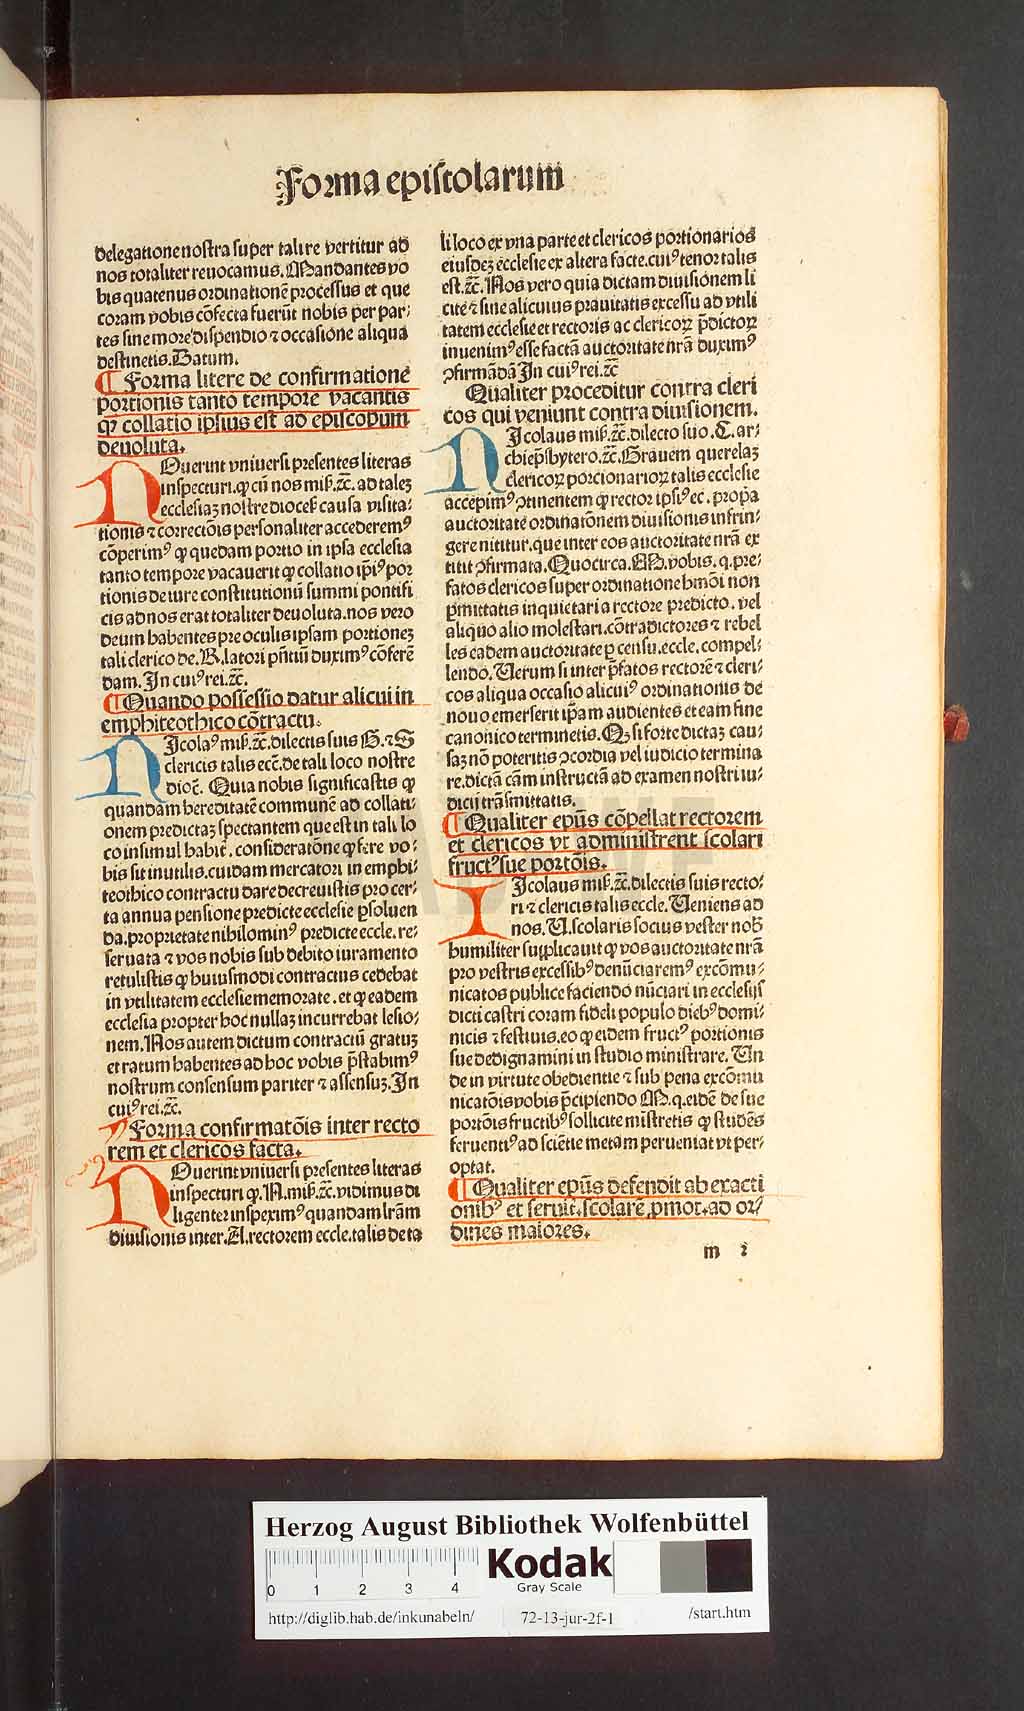 Forma epistolarum
delegatione nostra super tali re vertitur ad
nos totaliter reuocamus. Mandantes vo
bis quatenus ordinationē processus et que
coram vobis cōfecta fuerūt nobis per par⸗
tes sine more dispendio ⁊ occasione aliqua
destinetis. Datum.
¶ Forma litere de confirmatione
portionis tanto tempore vacantis
qꝫ collatio ipsius est ad episcopum
deuoluta.
NOuerint vniuersi presentes literas
inspecturi. ꝙ cū nos mif. ⁊c̄. ad taleꝫ
ecclesiaꝫ nostre dioces̄ causa visita⸗
tionis ⁊ correctōis personaliter accederemꝰ
cōperimꝰ ꝙ quedam portio in ipsa ecclesia
tanto tempore vacauerit ꝙ collatio ip̄iꝰ por
tionis de iure constitutionū summi pontifi
cis ad nos erat totaliter deuoluta. nos vero
deum habentes pre oculis ipsam portioneꝫ
tali clerico de. B. latori pn̄tiū duximꝰ cōferē
dam. In cuiꝰ rei. ⁊c̄.
¶ Quando possessio datur alicui in
emphiteothico cōtractu.
NIcolaꝰ mif. ⁊c̄. dilectis suis G. ⁊ S
clericis talis ecc̄. de tali loco nostre
dioc̄. Quia nobis significastis ꝙ
quandam hereditatē communē ad collati⸗
onem predictaꝫ spectantem que est in tali lo
co insimul habit̄. consideratōne ꝙ fere vo⸗
bis sit inutilis. cuidam mercatori in emphi⸗
teothico contractu dare decreuistis pro cer⸗
ta annua pensione predicte ecclesie ꝑsoluen
da. proprietate nihilominꝰ predicte eccle. re⸗
seruata ⁊ vos nobis sub debito iuramento
retulistis ꝙ huiusmodi contractus cedebat
in vtilitatem ecclesie memorate. et ꝙ eadem
ecclesia propter hoc nullaꝫ incurrebat lesio⸗
nem. Nos autem dictum contractū gratuꝫ
et ratum habentes ad hoc vobis p̄stabimꝰ
nostrum consensum pariter ⁊ assensuꝫ. In
cuiꝰ rei. ⁊c̄.
¶ Forma confirmatōis inter recto
rem et clericos facta.
NOuerint vniuersi presentes literas
inspecturi ꝙ. N. mif. ⁊c̄. vidimus di
ligenter inspeximꝰ quandam lr̄am
diuisionis inter. A. rectorem eccle. talis de ta
li loco ex vna parte et clericos portionarios
eiusdeꝫ ecclesie ex altera facte. cuiꝰ tenor talis
est. ⁊c̄. Nos vero quia dictam diuisionem li
cite ⁊ sine alicuius prauitatis excessu ad vtili
tatem ecclesie et rectoris ac clericoꝝ p̄dictoꝝ
inuenimꝰ esse factā auctoritate nr̄a duximꝰ
ꝯfirmādā In cuiꝰ rei. ⁊c̄
Qualiter proceditur contra cleri
cos qui veniunt contra diuisionem.
NIcolaus mif. ⁊c̄. dilecto suo. C. ar⸗
chip̄sbytero. ⁊c̄. Grauem querelaꝫ
clericoꝝ porcionarioꝝ talis ecclesie
accepimꝰ ꝯtinentem ꝙ rector ipsiꝰ ec. prop̄a
auctoritate ordinatōnem diuisionis infrin⸗
gere nititur. que inter eos auctoritate nr̄a ex
titit ꝯfirmata. Quocirca. M. vobis. q. pre⸗
fatos clericos super ordinatione hmōi non
ꝑmittatis inquietari a rectore predicto. vel
aliquo alio molestari. cōtradictores ⁊ rebel
les eadem auctoritate ꝑ censu. eccle. compel⸗
lendo. Verum si inter p̄fatos rectorē ⁊ cleri⸗
cos aliqua occasio alicuiꝰ ordinationis de
nouo emerserit ip̄am audientes et eam fine
canonico terminetis. Qꝫ si forte dictaꝫ cau⸗
saꝫ nō poteritis ꝯcordia vel iudicio termina
re. dictā cām instructā ad examen nostri iu⸗
dicij trāsmittatis.
¶ Qualiter ep̄us cōpellat rectorem
et clericos vt administrent scolari
fructꝰ sue portōis.
NIcolaus mif. ⁊c̄. dilectis suis recto⸗
ri ⁊ clericis talis eccle. Veniens ad
nos. V. scolaris socius vester nob̄
humiliter supplicauit ꝙ vos auctoritate nr̄a
pro vestris excessibꝰ denūciaremꝰ excōmu⸗
nicatos publice faciendo nūciari in ecclesijs
dicti castri coram fideli populo diebꝰ domi⸗
nicis ⁊ festiuis. eo ꝙ eidem fructꝰ portionis
sue dedignamini in studio ministrare. Un
de in virtute obedientie ⁊ sub pena excōmu
nicatōis vobis p̄cipiendo M. q. eidē de sue
portōis fructibꝰ sollicite mīstretis ꝙ studēs
feruentiꝰ ad sciētie metam perueniat vt per⸗
optat.
¶ Qualiter ep̄us defendit ab exacti
onibꝰ et seruit. scolarē ꝓmot. ad or⸗
dines maiores.
m 2
Herzog August Bibliothek Wolfenbüttel
0 1 2 3 4
Kodak
Gray Scale
http://diglib.hab.de/inkunabeln/ 72-13-jur-2f-1 /start.htm